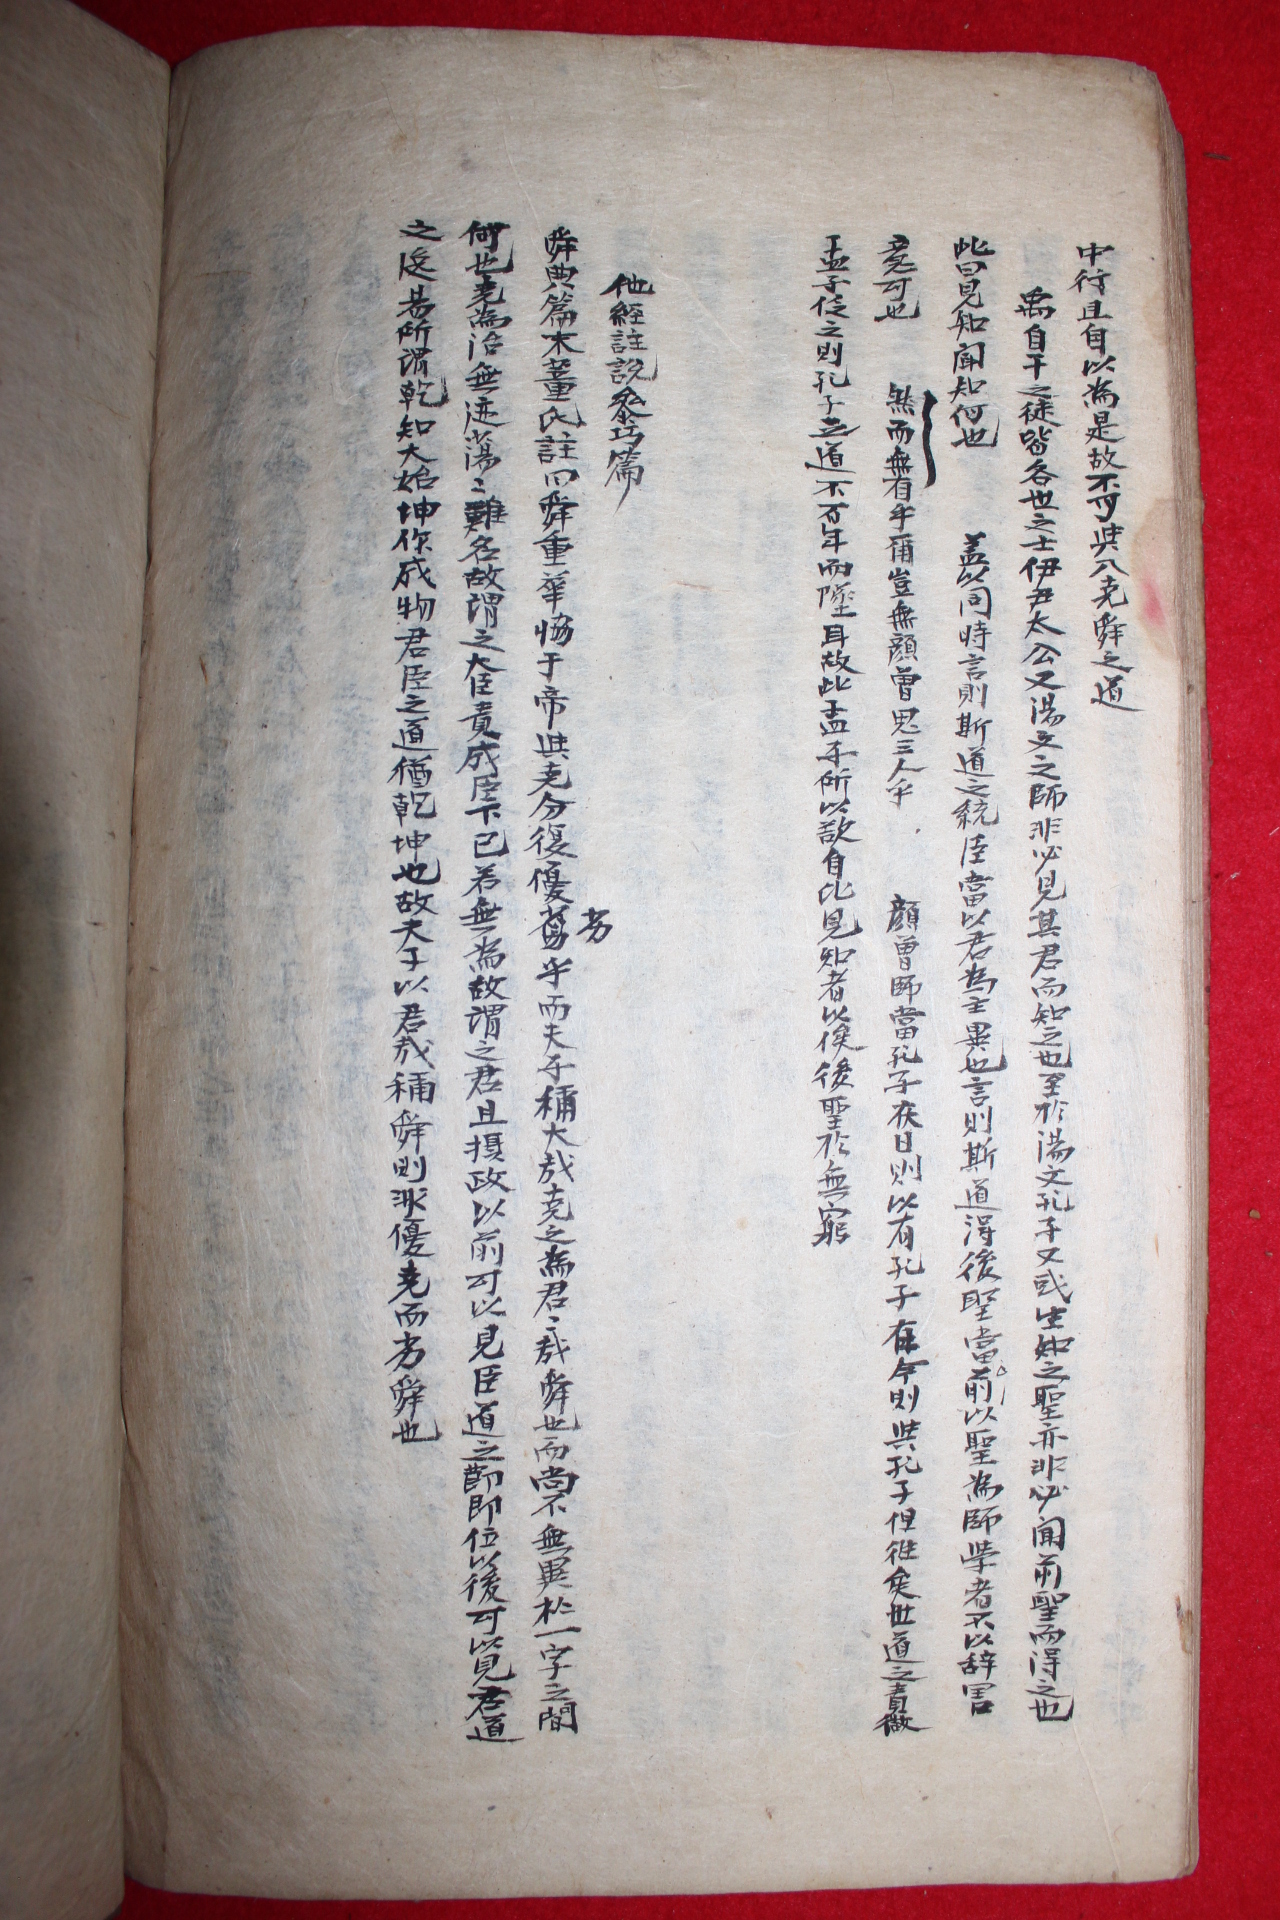 中行且自以為是故不可與入堯舜之道
禹自干之徒皆名世之士伊尹太公又湯文之師非必見其君而知之也至於湯文孔子又或生知之聖亦非必聞前聖而得之也
此曰見知聞知何也　蓋以同時言則斯道之統臣當以君為主異世言則斯道得後聖當前以聖為師學者不以辞害
意可也　然而無有乎爾豈無顔曾思三人乎　顔曾師當孔子在日則以有孔子在今則與孔子但往矣世道之責微
孟子任之則孔子之道不百年而墜耳故此孟子所以歎自比見知者以俟後聖於無窮
他經註說叅巧篇
舜典篇末董氏註曰舜重華協于帝與堯分復優劣乎而夫子稱大哉堯之為君〻哉舜也而尚不無異於一字之間
何也堯為治無迹蕩〻難名故謂之大臣責成臣下已若無為故謂之君且攝政以前可以見臣道之節即位以後可以見君道
之遂易所謂乾知大始坤作成物君臣之道猶乾坤也故夫子以君哉稱舜則非優堯而劣舜也